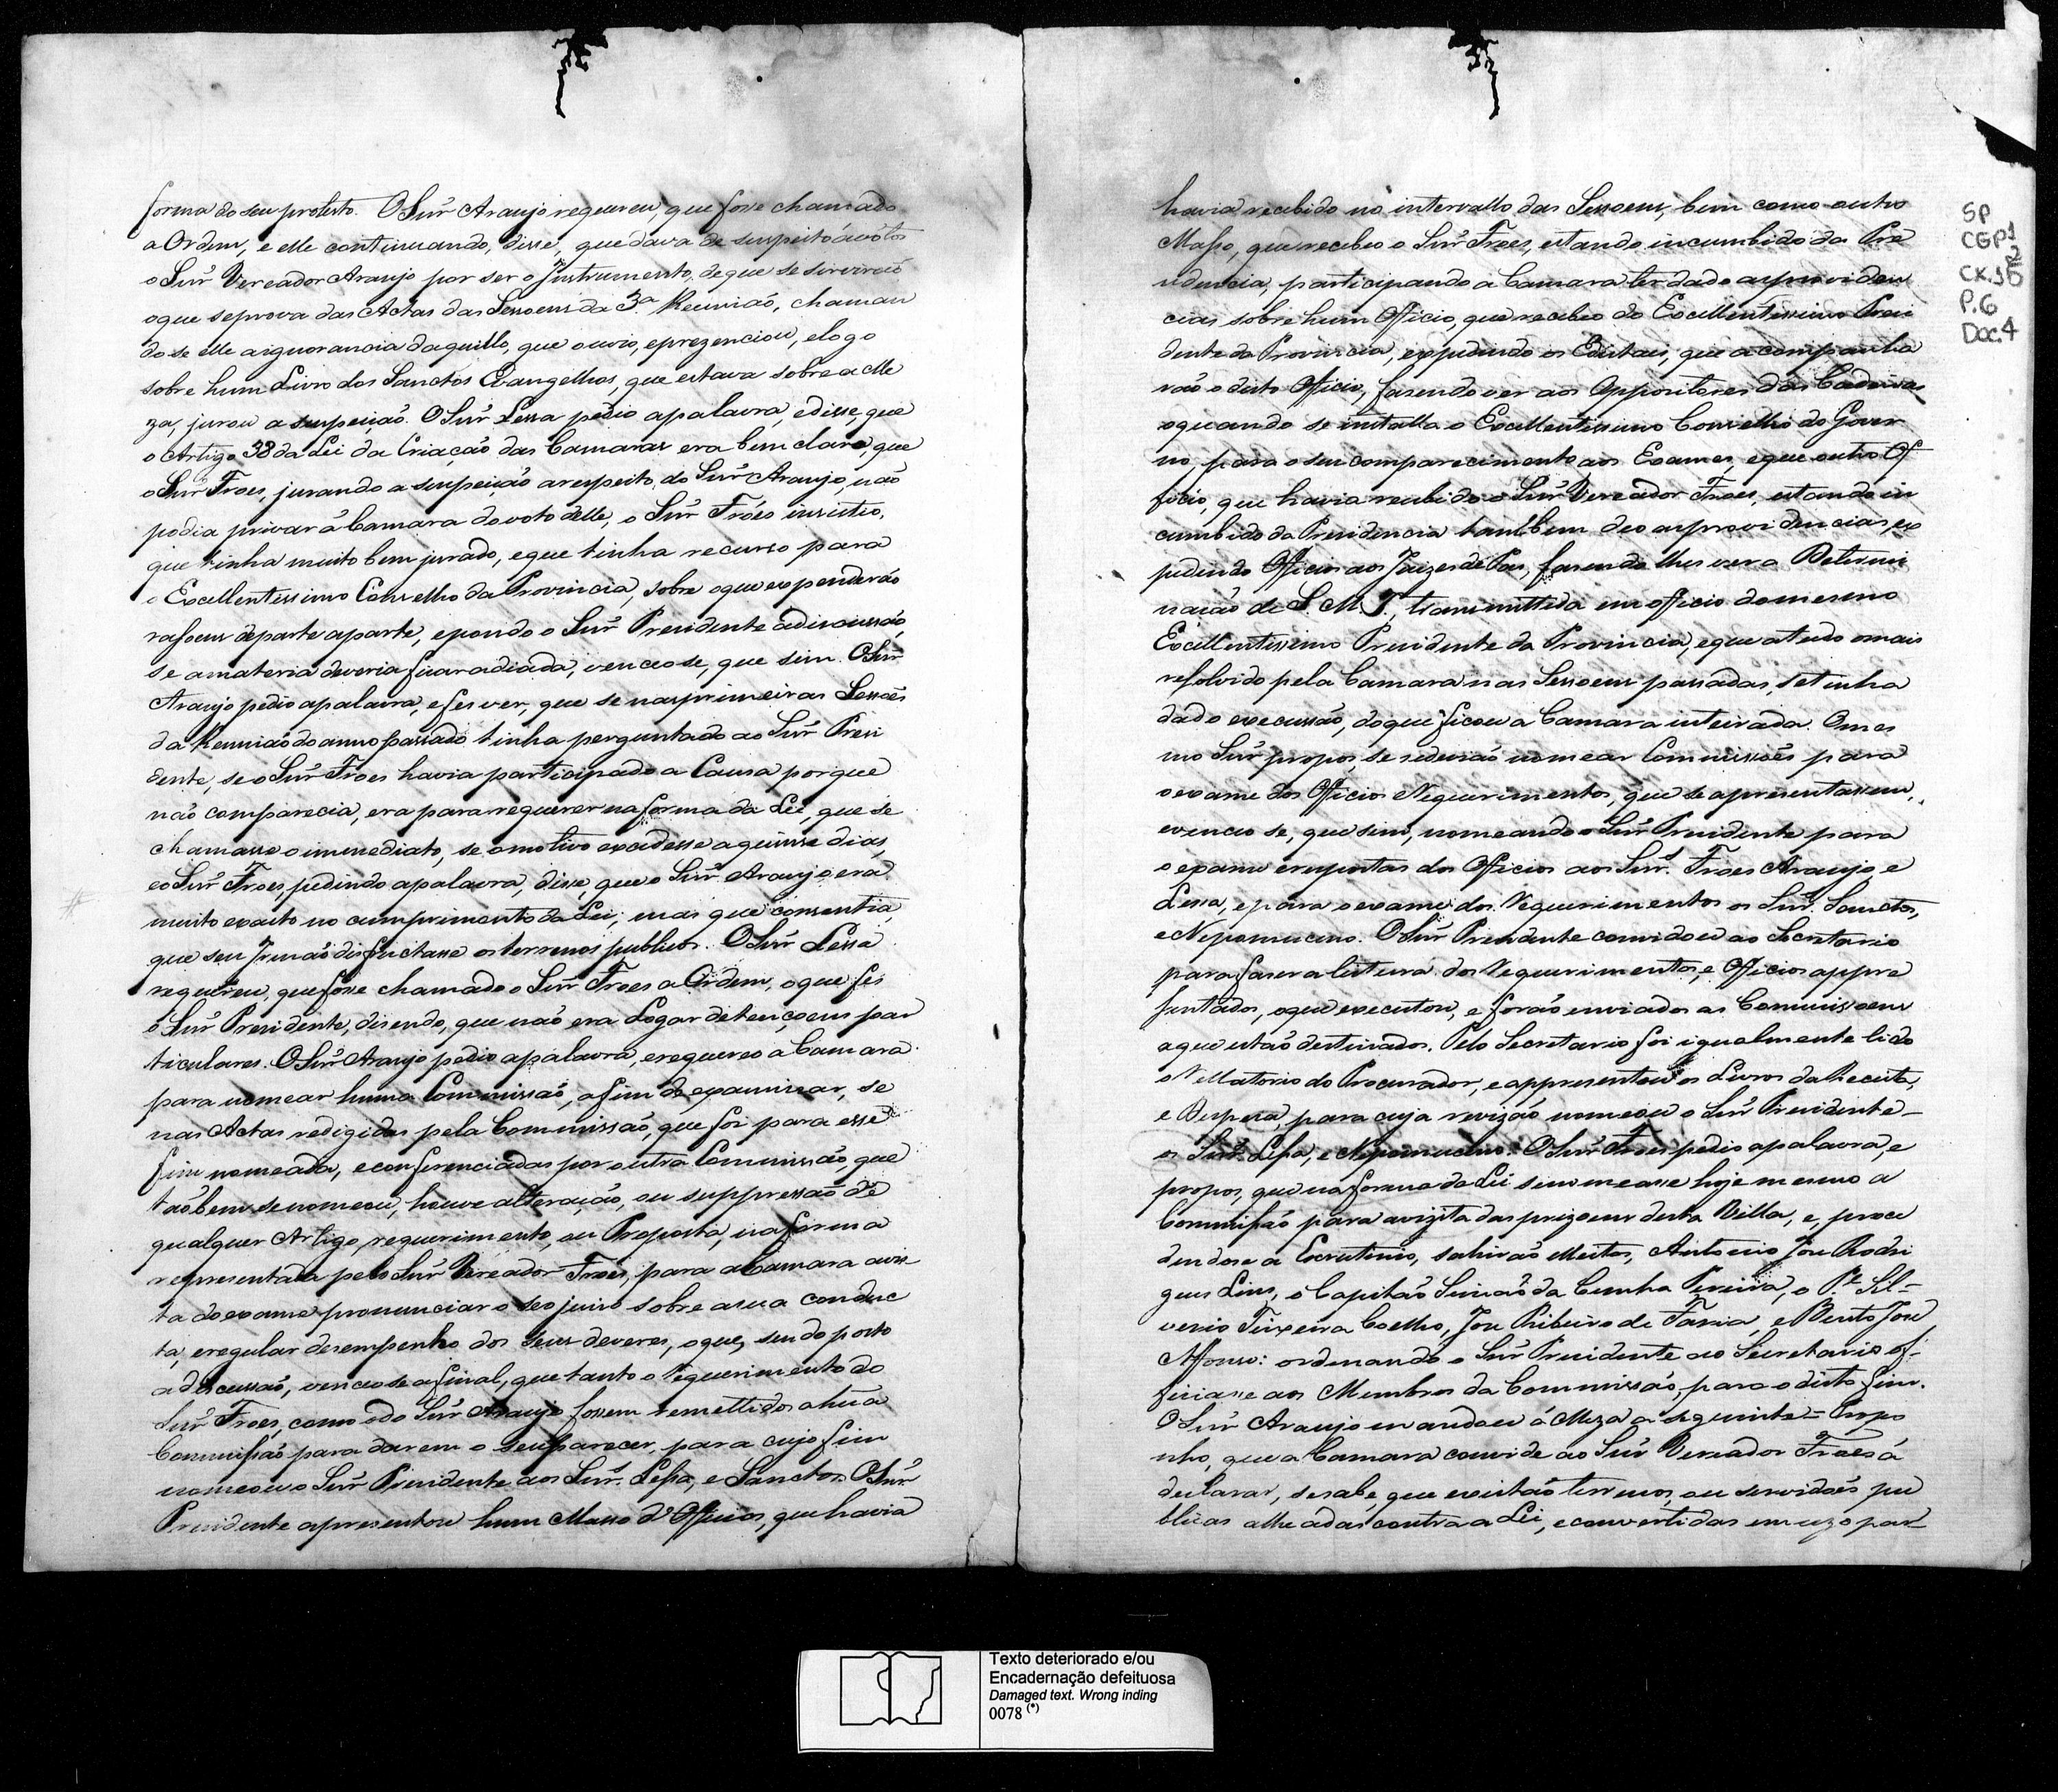 forma do seu protesto. O Snr̃ Araujo requereu, que fosse chamado
a Ordem, e elle continuando, disse, que dava de suspeito á votos
o Snr̃ Vereador Araujo por ser o Instrumento, de que se servirão
o que se prova das Actas das Sessoens da 3.ª Reunião, chaman
do se elle a ignorancia daquillo, que ouvio, e prezenciou, e logo
sobre hum Livro dos Sanctos Evangelhos, que estava sobre a Me
za, jurou a suspeição. O Snr̃ Lessa pedio a palavra, e disse, que
o Artigo 38 da Lei da Criação das Camaras era bem claro, que
o Snr̃ Froes, jurando a suspeição a respeito do Snr̃ Araujo, não
podia privar á Camara do voto delle, o Snr̃ Fróes insistio,
que tinha muito bem jurado, e que tinha recurso para
o Excellentissimo Conselho da Provincia, sobre o que expenderão
rasoens de parte a parte, e pondo o Snr̃ Presidente a discussão,
se a materia deveria ficar adiada, venceo se, que sim. O Snr̃
Araujo pedio a palavra, e fes ver, que se nas primeiras Sessões
da Reunião do anno passado tinha perguntado ao Snr̃ Presi
dente, se o Snr̃ Froes havia participado a Causa porque
não comparecia, era para requerer na forma da Lei, que se
chamasse o immediato, se o motivo excedesse a quinse dias,
e o Snr̃ Froes, pedindo a palavra, disse, que o Snr̃ Araujo era
muito exacto no cumprimento da Lei; mas que consentia,
que seu Irmão disfructasse os terrenos publicos. O Snr̃ Lessa
requereu, que fosse chamado o Snr̃ Froes a Ordem, o que fes
o Snr̃ Presidente, disendo, que não era Logar de tençoens par
ticulares. O Snr̃ Araujo pedio a palavra, e requereo a Camara
para nomear huma Commissão, a fim de examinar, se
nas Actas redigidas pela Commissão, que foi para esse
fim nomeada, e conferenciadas por outra Commissão, que
tãobem se nomeou, houve alteração, ou suppressão de
qualquer Artigo, requerimento, ou Proposta, na forma
representada pelo Snr̃ Vereador Froes, para a Camara avis
ta do exame pronunciar o seo juiso sobre a sua conduc
ta, e regular desempenho dos seus deveres, o que, sendo posto
a discussão, venceo se afinal, que tanto o requerimento do
Snr̃ Froes, como o do Snr̃ Araujo fossem remettidos a hũa
Commissão para darem o seu parecer, para cujo fim
nomeou o Snr̃ Presidente aos Snrs̃. Lessa, e Sanctos. O Snr̃
Presidente apresentou hum Masso d'Officios, que havia
havia recebido no intervallo das Sessoens, bem como outro
Masso, que recebeo o Snr̃ Froes, estando incumbido da Pre
sidencia, participando a Camara ter dado as providen
cias sobre hum Officio, que recebeo do Excellentissimo Presi
dente da Provincia, expedindo os Editais, que acompanha
vão o dicto Officio, fasendo ver aos Oppositores das Cadeiras
o quando se installa o Excellentissimo Conselho do Gover
no, para o seu comparecimento aos Exames, e que outro Of
ficio, que havia recebido o Snr̃ Vereador Froes, estando in
cumbido da Presidencia tambem deo as providencias, ex
pedindo Officios aos Juizes de Pas, fasendo lhes ver a Determi
nação de S. M. I. transmittida em officio do mesmo
Excellentissimo Presidente da Provincia, e que a tudo o mais
resolvido pela Camara nas Sessoens passadas, se tinha
dado execussão, do que ficou a Camara inteirada. O mes
mo Snr̃ propos, se se devião nomear Commissões para
o exame dos Officios e Requerimentos, que se apresentassem,
e venceo se, que sim, nomeando o Snr̃ Presidente para
o exame e respostas dos Officios aos Snrs̃. Froes Araujo e
Lessa, e para o exame dos Requerimentos os Snrs̃. Sanctos,
e Nepomuceno. O Snr̃ Presidente convidou ao Secretario
para faser a leitura dos Requerimentos, e Officios appre
sentados, o que executou, e forão enviados as Commissoens
a que estão destinados. Pelo Secretario foi igualmente lido
o Rellatorio do Procurador, e appresentou os Livros da Receita,
e Despesa, para cuja revizão nomeou o Snr̃ Presidente
os Snrs̃. Lessa, e Nepomuceno. O Snr̃ Froes pedio a palavra, e
propos, que na forma da Lei se nomeasse hoje mesmo a
Commissão para a vizita das prizoens desta Villa, e, proce
dendo se a Escrutinio, sahirão eleitos, Antonio Jose Rodri
gues Lins, o Capitão Simão da Cunha Pereira, o P.e Sil-
verio Teixeira Coelho, Jose Ribeiro de Faria, e Bento Jose
Affonso: ordenando o Snr̃ Presidente ao Secretario of-
ficiasse aos Membros da Commissão, para o dicto fim.
O Snr̃ Araujo mandou á Meza a seguinte = Propo
nho, que a Camara convide ao Snr̃ Vereador Froes á
declarar, se sabe, que existão terrenos, ou servidões pu
blicas alheadas contra a Lei, e convertidas em uzo par-
SP
CGP1
2
CX.15
P.6
Doc.4
Texto deteriorado e/ou
Encadernação defeituosa
Damaged text. Wrong inding
0078 (*)